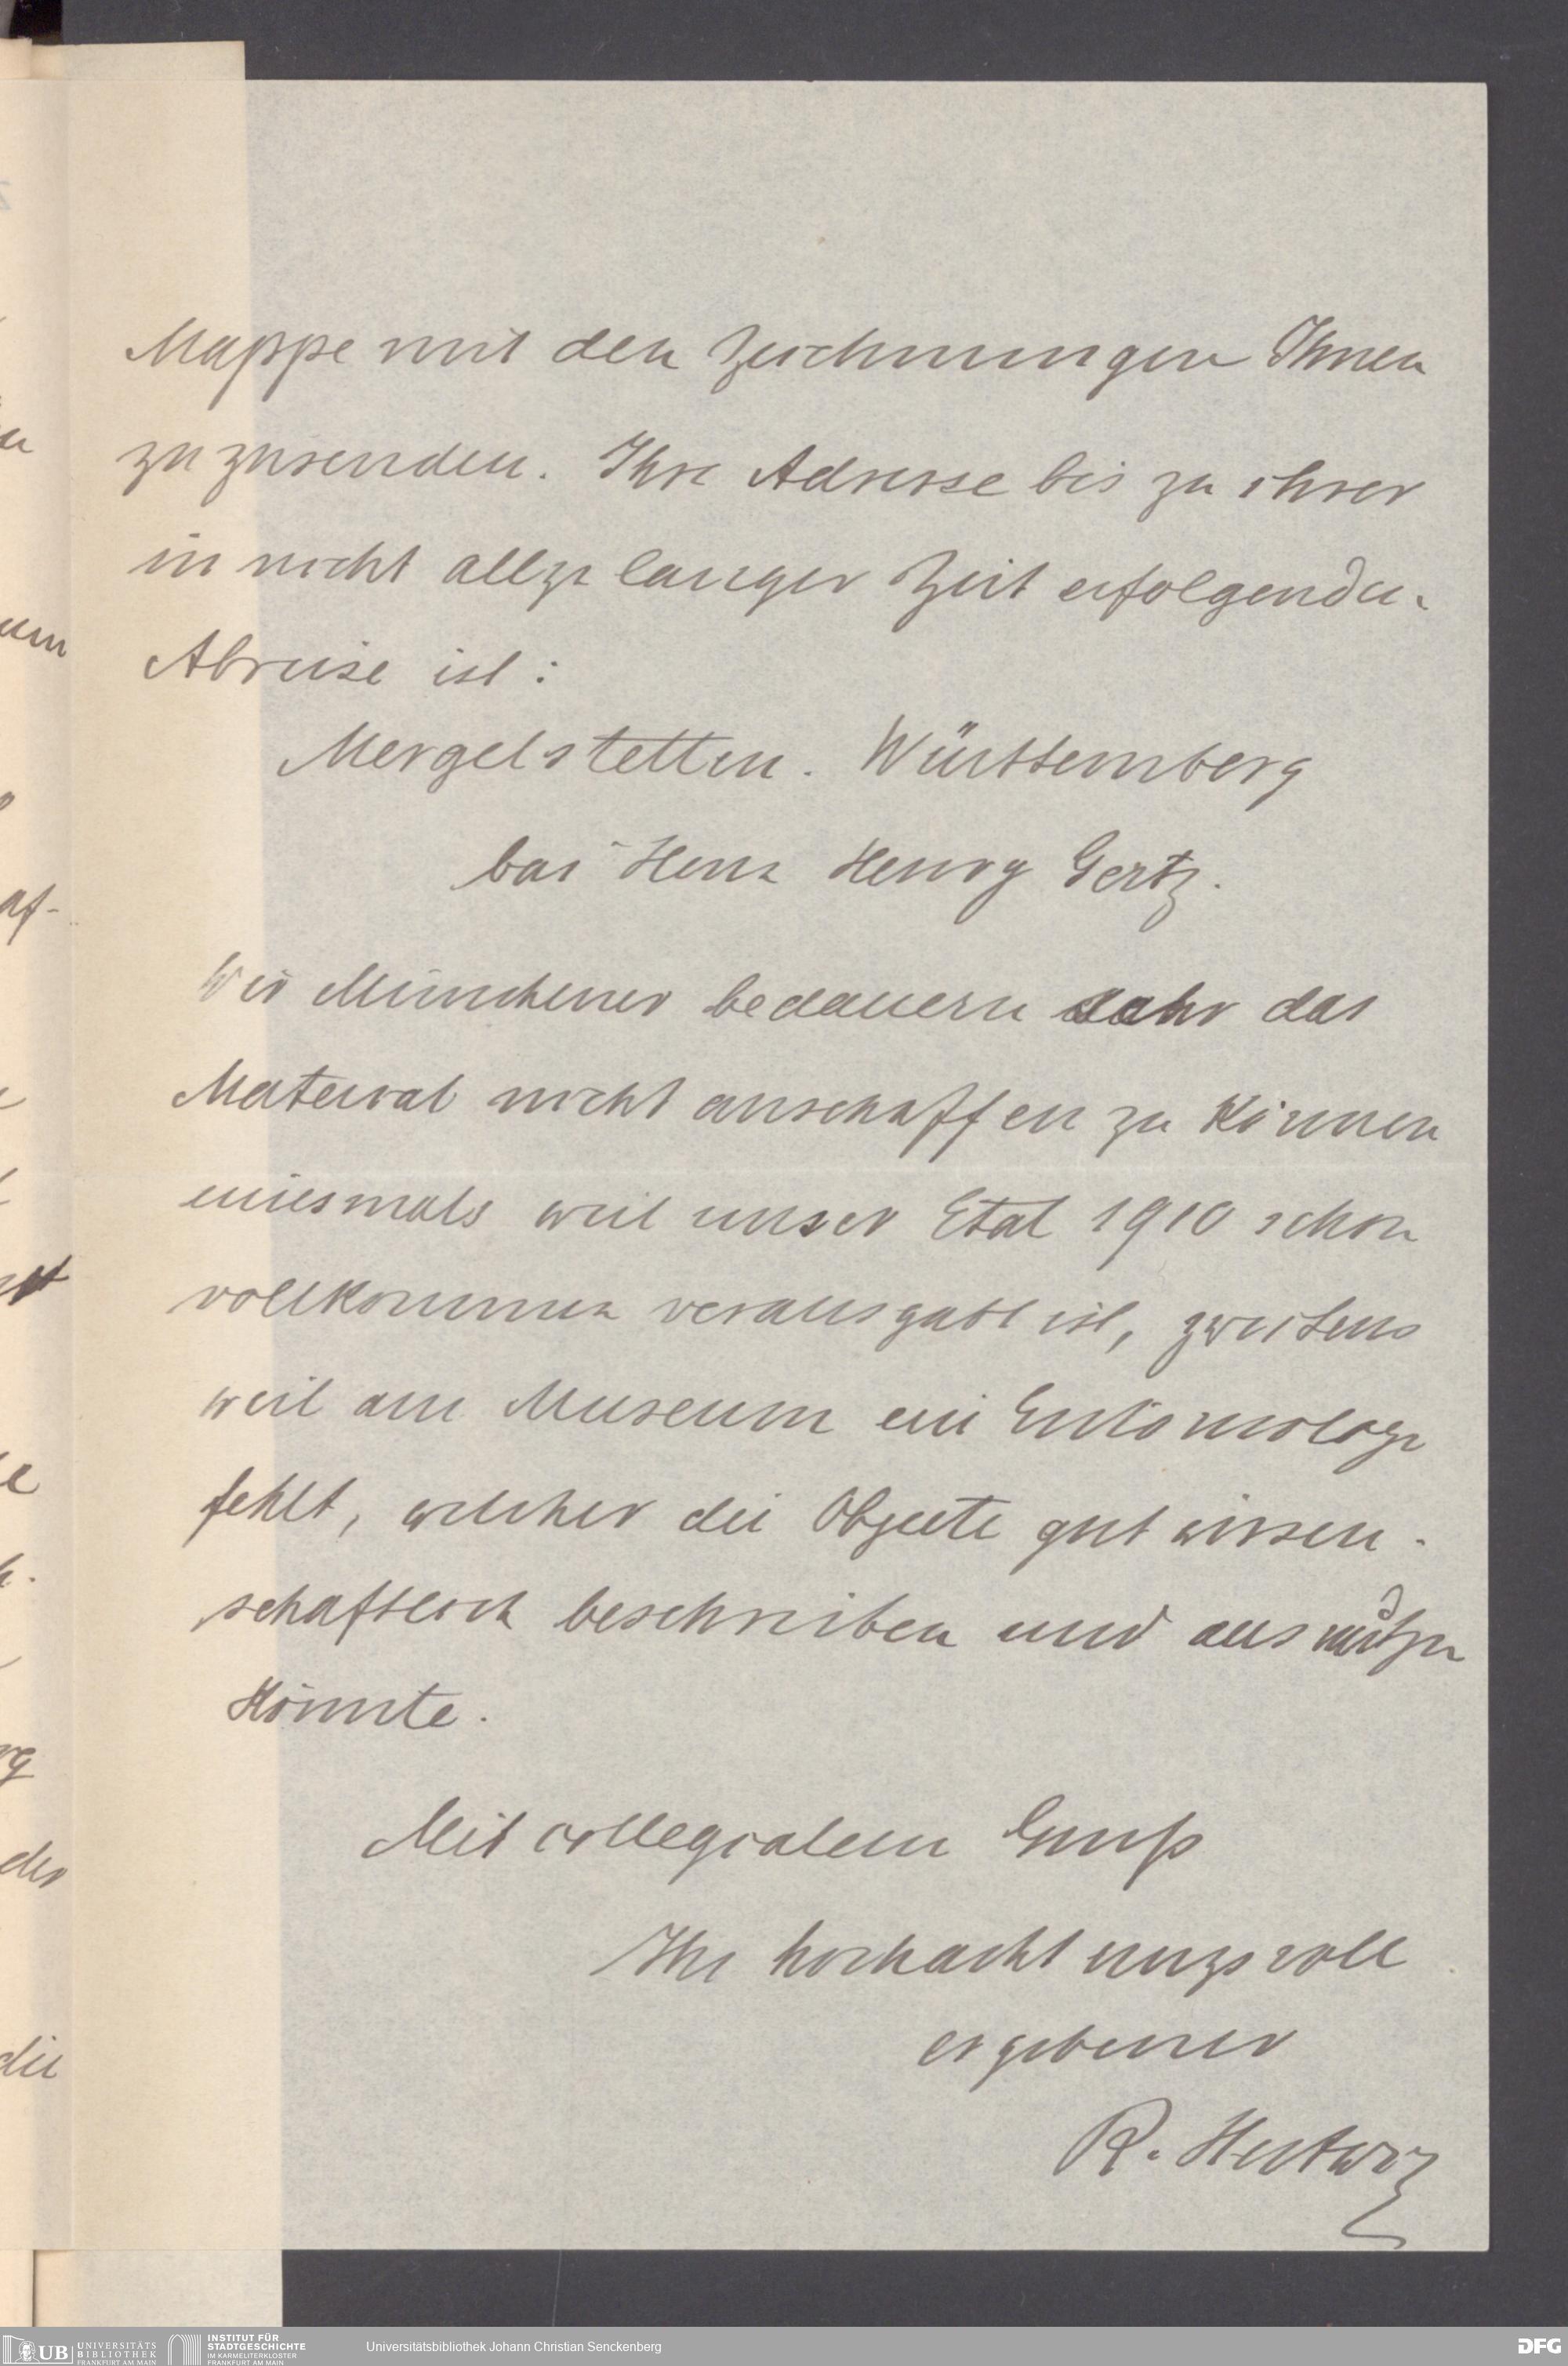 Mappe mit den Zeichnungen Ihnen
zu zusenden. Ihre Adresse bis zu ihrer
in nicht allzu langer Zeit erfolgenden
Abreise ist:
Mergelstetten. Württemberg
bei Herrn Henry Gertz.
Wir Münchener bedauern sehr das
Material nicht anschaffen zu können
einesmals weil unser Etat 1910 schon
vollkommen verausgabt ist, zweitens
weil am Museum ein Entomologe
fehlt, welcher die Objecte gut wissen-
schaftlich beschreiben und ausnützen
könnte.
Mit collegialem Gruß
Ihr hochachtungsvoll
ergebener
R. Hertwig
UB
UNIVERSITÄTS
BIBLIOTHEK
FRANKFURT AM MAIN
INSTITUT FÜR
STADTGESCHICHTE
IM KARMELITERKLOSTER
FRANKFURT AM MAIN
Universitätsbibliothek Johann Christian Senckenberg
DFG